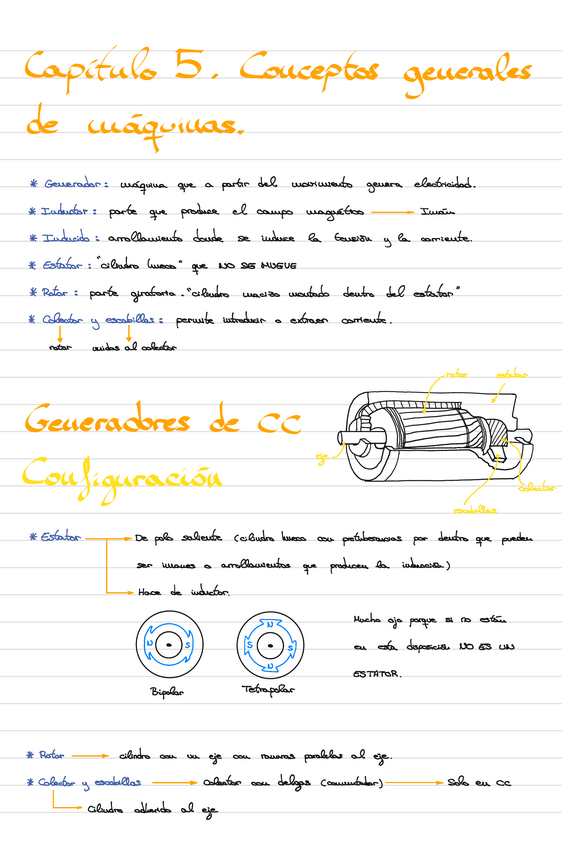 Capítulo 5. Conceptos generales
de máquinas.
* Generador: máquina que a partir del movimiento genera electricidad.
* Inductor: parte que produce el campo magnético → Imán
* Inducido: arrollamiento donde se induce la tensión y la corriente.
* Estator: "cilindro hueco" que NO SE MUEVE
* Rotor: parte giratoria. "cilindro macizo montado dentro del estator"
* Colector y escobillas: permite introducir o extraer corriente.
rotor unidas al colector
rotor estator
Generadores de CC
eje
Configuración
colector
escobillas
* Estator → De polo saliente (cilindro hueco con protuberancias por dentro que pueden
ser imanes o arrollamientos que producen la inducción)
→ Hace de inductor.
N S N S S N
Mucho ojo porque si no están
en esta disposición NO ES UN
ESTATOR.
Bipolar Tetrapolar
* Rotor → cilindro con un eje con ranuras paralelas al eje.
* Colector y escobillas → Colector con delgas (conmutador) → Solo en CC
→ Cilindro adherido al eje